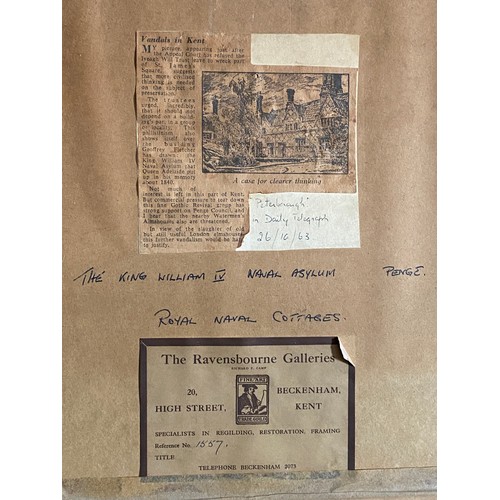 Vandals in Kent
MY picture, appearing just after
the Appeal Court has refused the
Iveagh Will Trust leave to wreck part
of St. James's
Square, suggests
that more civilised
thinking is needed
on the subject of
preservation.
The trustees
urged, incredibly,
that it should not
depend on a build-
ing's part in a group
or locality. This
philistinism also
shows itself over
the building
Geoffrey Fletcher
has drawn, the
King William IV
Naval Asylum that
Queen Adelaide put
up in his memory
about 1840.
Not much of
interest is left in this part of Kent.
But commercial pressure to tear down
this fine Gothic Revival range has
strong support on Penge Council, and
I hear that the nearby Watermen's
Almshouses also are threatened.
In view of the slaughter of old
but still useful London almshouses
this further vandalism would be hard
to justify.
A case for clearer thinking
"Peterborough"
in Daily Telegraph
26/10/63
THE KING WILLIAM IV NAVAL ASYLUM PENGE.
ROYAL NAVAL COTTAGES.
The Ravensbourne Galleries
RICHARD F. CAMP
20, BECKENHAM,
HIGH STREET, KENT
FINE ART
TRADE GUILD
SPECIALISTS IN REGILDING, RESTORATION, FRAMING
Reference No. 1557.
TITLE
TELEPHONE BECKENHAM 2073